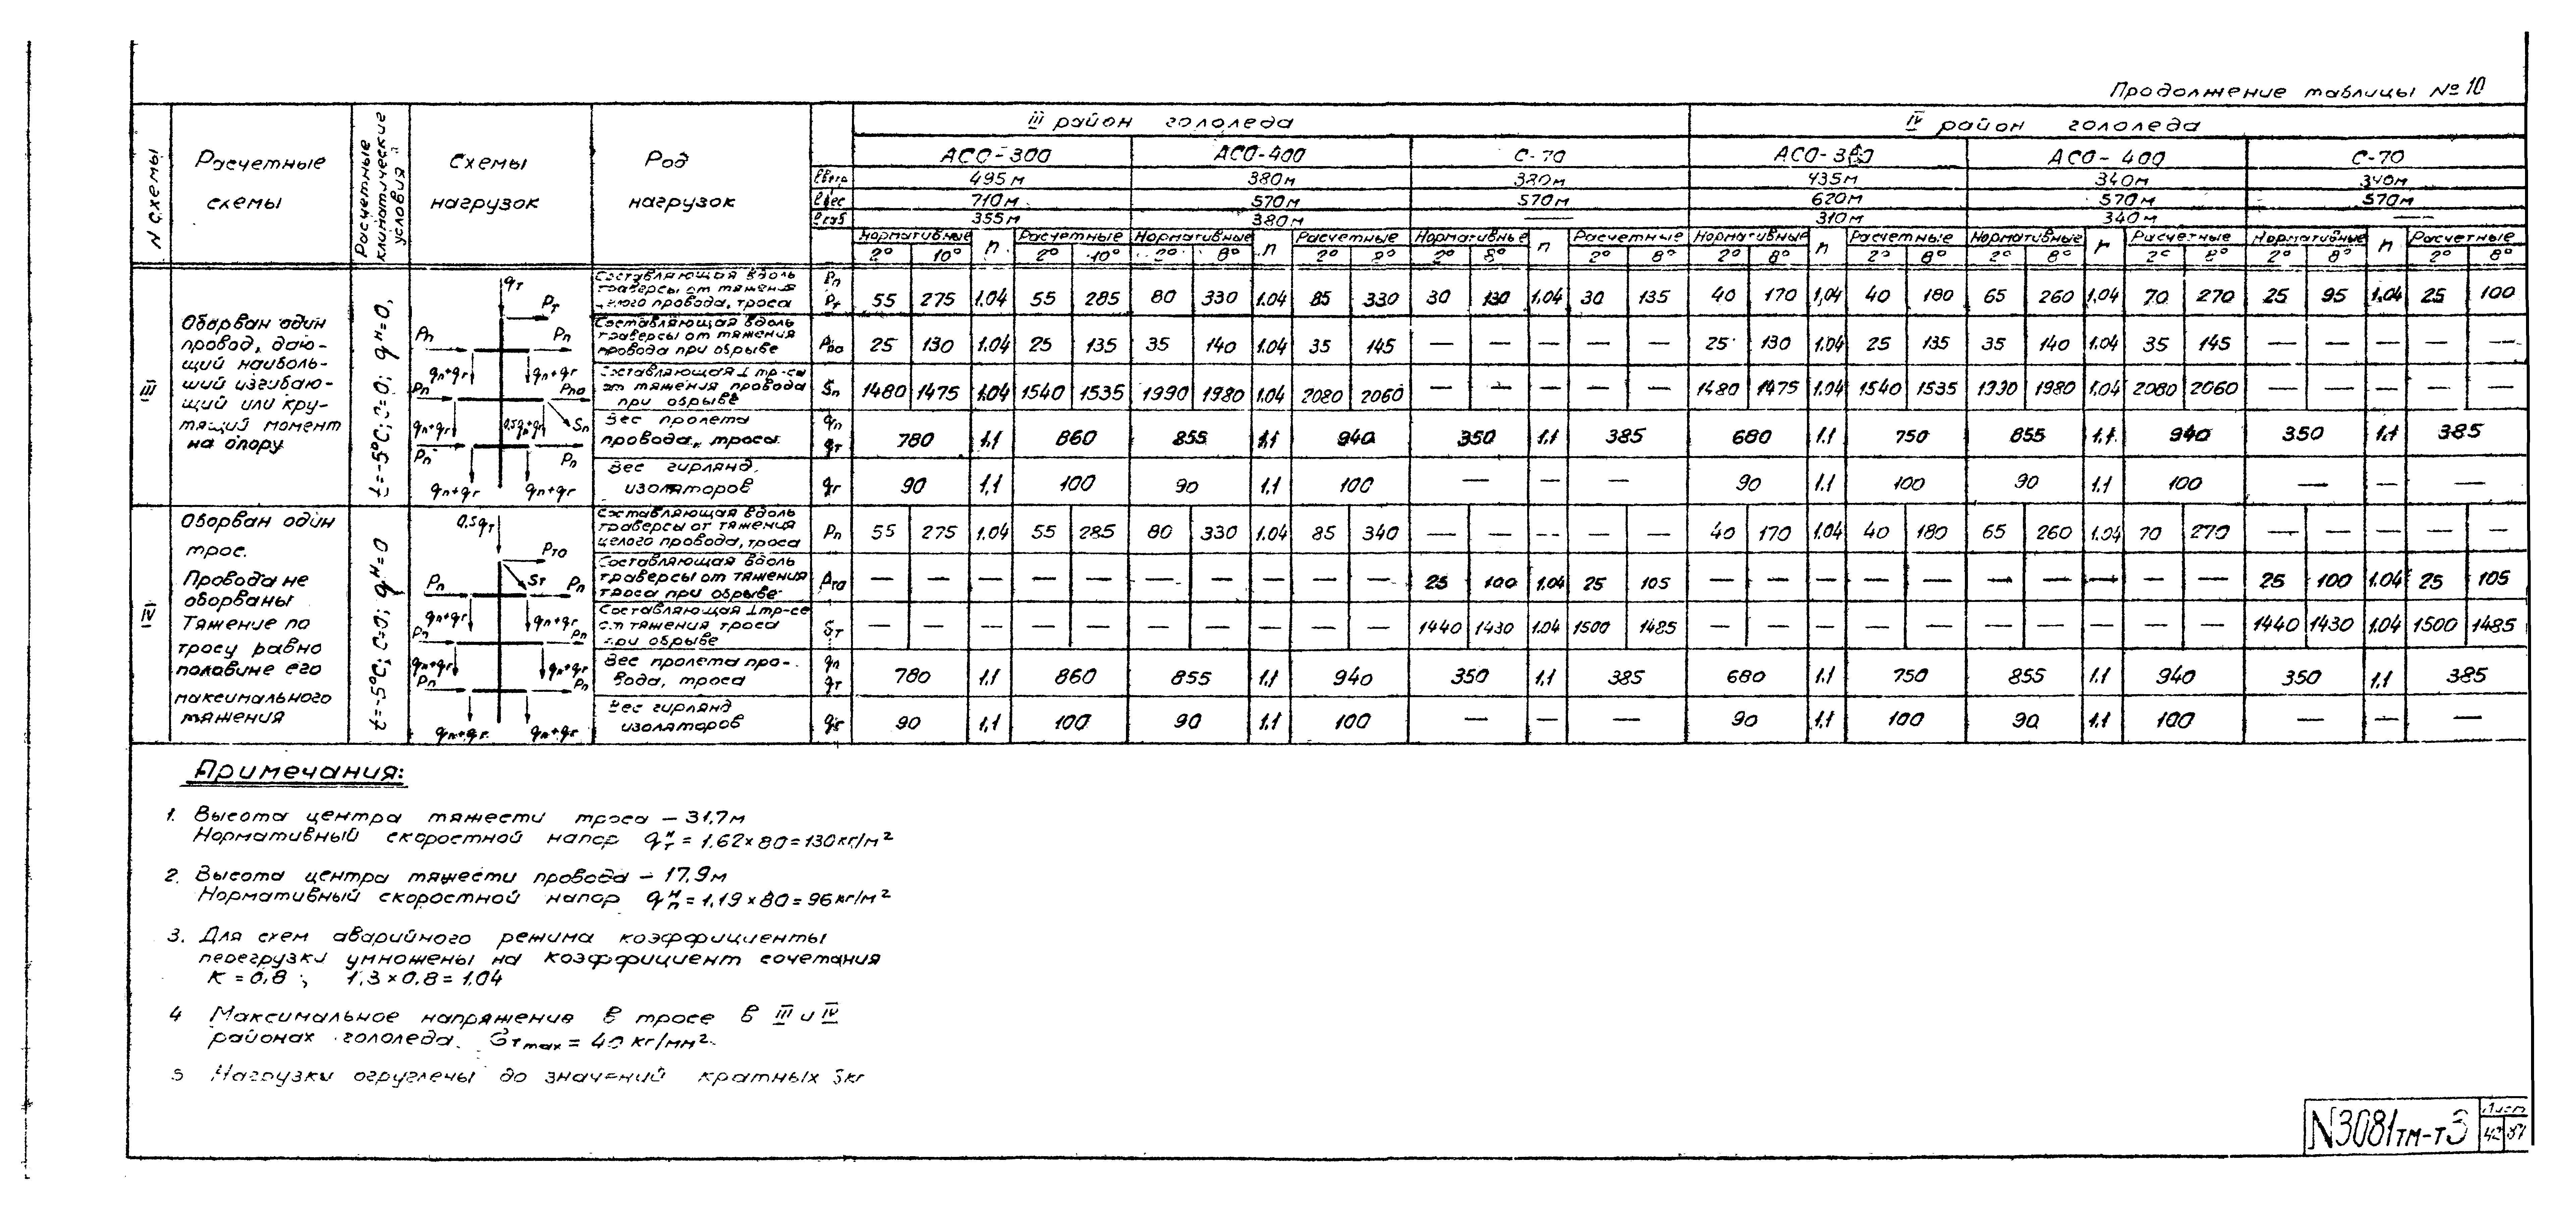 Продолжение таблицы № 10
N схемы
Расчетные схемы
Расчетные климатические условия
Схемы нагрузок
Род нагрузок
III район гололеда
IV район гололеда
АСО-300 АСО-400 С-70 АСО-300 АСО-400 С-70
ℓветр 495м 380м 380м 435м 340м 340м
ℓвес 710м 570м 570м 620м 570м 570м
ℓгаб 355м 380м — 310м 340м —
Нормативные n Расчетные Нормативные n Расчетные Нормативные n Расчетные Нормативные n Расчетные Нормативные n Расчетные Нормативные n Расчетные
2° 10° 2° 10° 2° 8° 2° 8° 2° 8° 2° 8° 2° 8° 2° 8° 2° 8° 2° 8° 2° 8° 2° 8°
III
Оборван один
провод, даю-
щий наиболь-
ший изгибаю-
щий или кру-
тящий момент
на опору
t=-5°C; C=0; qᴴ=0,
qт
Pт
Pп Pп
qп+qг qп+qг
Pп Pпо
qп+qг 0,5qп+qг Sп
Pп Pп
qп+qг qп+qг
Составляющая вдоль
траверсы от тяжения
целого провода, троса
Pп
Pт 55 275 1.04 55 285 80 330 1.04 85 330 30 130 1.04 30 135 40 170 1,04 40 180 65 260 1,04 70 270 25 95 1.04 25 100
Составляющая вдоль
траверсы от тяжения
провода при обрыве
Pпо 25 130 1.04 25 135 35 140 1.04 35 145 — — — — — 25 130 1.04 25 135 35 140 1.04 35 145 — — — — —
Составляющая ⊥ тр-се
от тяжения провода
при обрыве
Sп 1480 1475 1.04 1540 1535 1990 1980 1.04 2080 2060 — — — — — 1480 1475 1.04 1540 1535 1990 1980 1.04 2080 2060 — — — — —
Вес пролета
провода, троса
qп
qт 780 1.1 860 855 1.1 940 350 1.1 385 680 1.1 750 855 1.1 940 350 1.1 385
Вес гирлянд
изоляторов
qг 90 1,1 100 90 1.1 100 — — — 90 1.1 100 90 1.1 100 — — —
IV
Оборван один
трос.
Провода не
оборваны
Тяжение по
тросу равно
половине его
максимального
тяжения
t=-5°C; C=0; qᴴ=0
0,5qт
Pто
Pп Sт Pп
qп+qг qп+qг
Pп Pп
qп+qг qп+qг
Pп Pп
qп+qг qп+qг
Составляющая вдоль
траверсы от тяжения
целого провода, троса
Pп 55 275 1.04 55 285 80 330 1.04 85 340 — — — — — 40 170 1.04 40 180 65 260 1.04 70 270 — — — — —
Составляющая вдоль
траверсы от тяжения
троса при обрыве
Pто — — — — — — — — — — 25 100 1.04 25 105 — — — — — — — — — — 25 100 1.04 25 105
Составляющая ⊥ тр-се
от тяжения троса
при обрыве
Sт — — — — — — — — — — 1440 1430 1.04 1500 1485 — — — — — — — — — — 1440 1430 1.04 1500 1485
Вес пролета про-
вода, троса
qп
qт 780 1.1 860 855 1.1 940 350 1,1 385 680 1.1 750 855 1.1 940 350 1,1 385
Вес гирлянд
изоляторов
qг 90 1,1 100 90 1.1 100 — — — 90 1.1 100 90 1.1 100 — — —
Примечания:
1. Высота центра тяжести троса — 31,7м
Нормативный скоростной напор qтᴴ = 1.62×80=130кг/м²
2. Высота центра тяжести провода — 17,9м
Нормативный скоростной напор qпᴴ=1,19×80=96кг/м²
3. Для схем аварийного режима коэффициенты
перегрузки умножены на коэффициент сочетания
К=0,8; 1,3×0,8=1,04
4 Максимальное напряжение в тросе в III и IV
районах гололеда. бтmax = 40 кг/мм²
5 Нагрузки округлены до значений кратных 5кг
N3081тм-т3
Лист
42